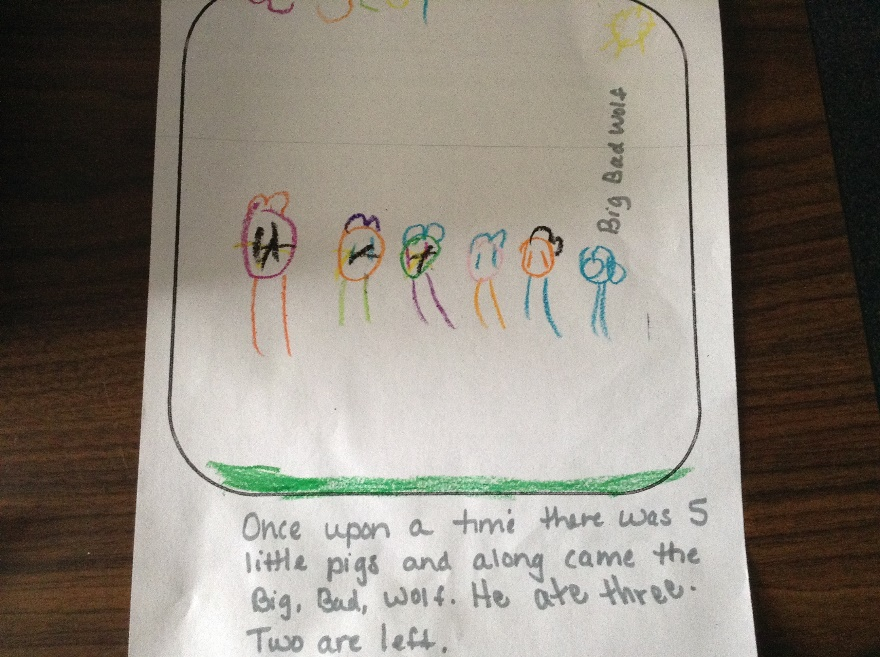 Big Bad Wolf
Once upon a time there was 5
little pigs and along came the
Big, Bad, Wolf. He ate three.
Two are left.